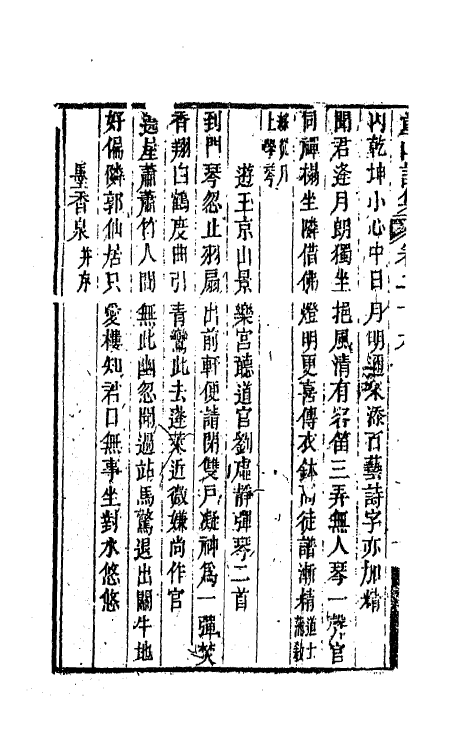 內乾坤小心中日月明通來添百藝詩字亦加精
聞君逢月朗獨坐挹風清有客笛三弄無人琴一聲官
同禪榻坐隣借佛燈明更喜傳衣鉢高徒譜漸精道士蕭敎
上學琴
遊王京山景樂宮聽道官劉虛靜彈琴二首
到門琴忽止羽扇出前軒便請閉雙戶凝神爲一彈焚
香翔白鶴度曲引青鸞此去蓬萊近微嫌尚作官
遶屋蕭蕭竹人間無此幽忽聞過站馬驚退出關牛地
好偏隣郭仙居只愛樓知君日無事坐對水悠悠
墨香泉并序